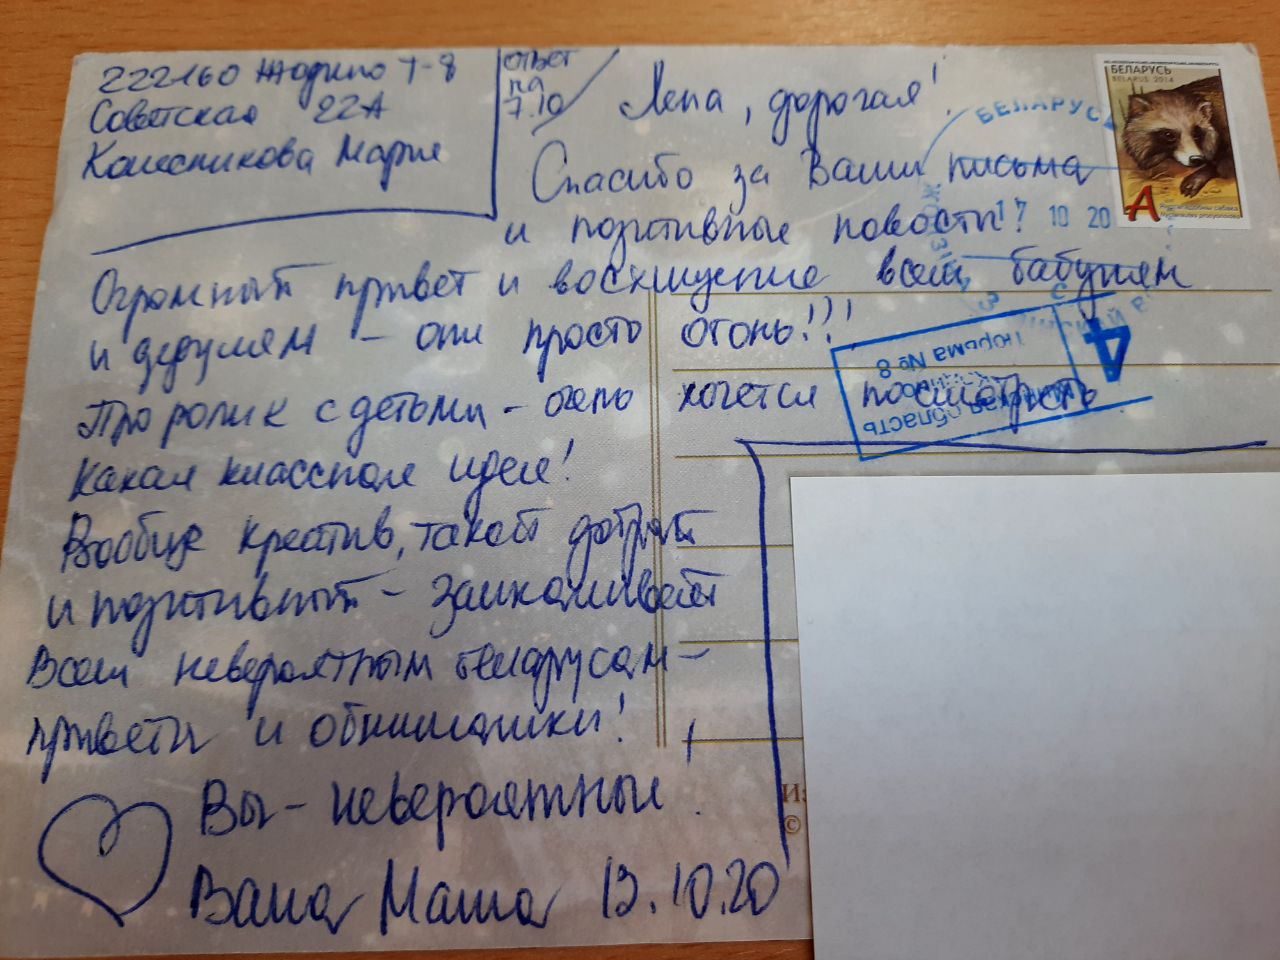 222160 Жодино Т-8
Советская 22А
Колесникова Мария
ответ
на
7.10
Лена, дорогая!
Спасибо за Ваши письма
и позитивные новости!
Огромный привет и восхищение всем бабулям
и дедулям – они просто огонь!!!
Про ролик с детьми – очень хочется посмотреть.
Какая классная идея!
Вообще креатив, такой добрый
и позитивный – зашкаливает
Всем невероятным беларусам –
приветы и обнимашки!
Вы – невероятные!
Ваша Маша 13.10.20
БЕЛАРУСЬ
BELARUS 2014
А
Nyctereutes procyonoides
БЕЛАРУСЬ
17 10 20
4
Тюрьма № 8
область
©